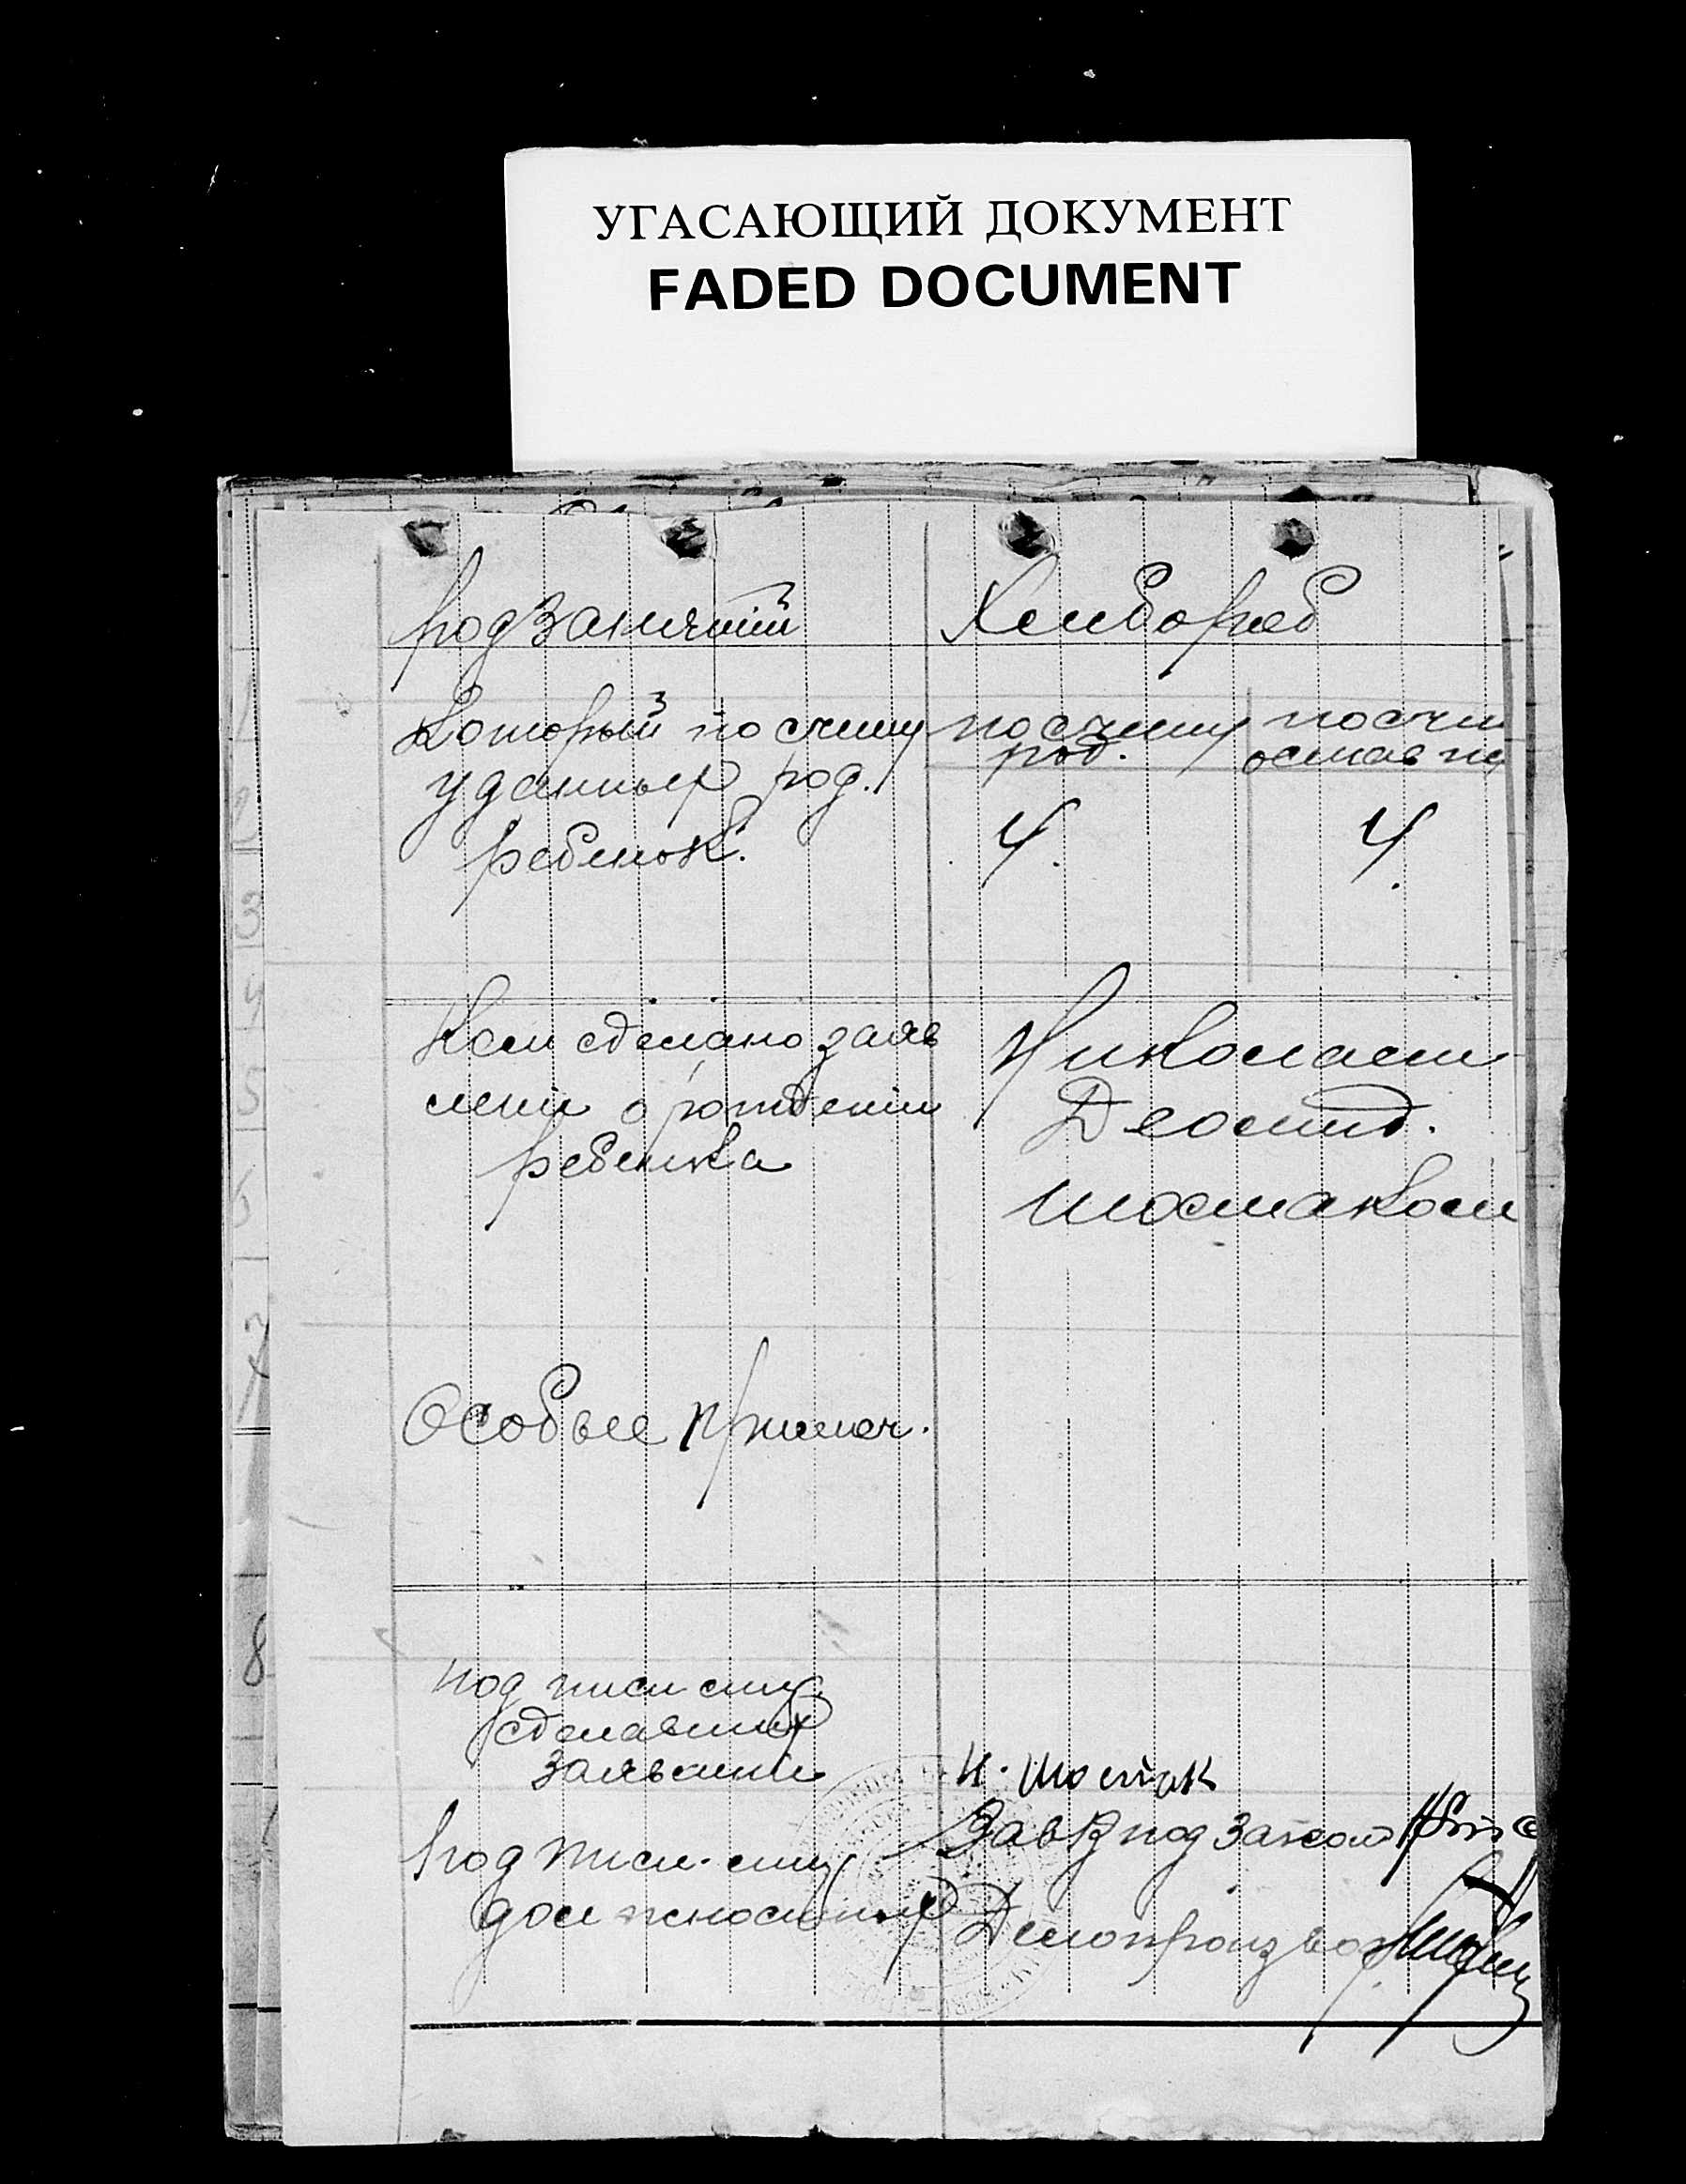 УГАСАЮЩИЙ ДОКУМЕНТ
FADED DOCUMENT
род занятий
Хлибороб
Который по счету
у данных род.
ребенок.
по счету
род.
по счет
остав
4.
4.
Кем сделано заяв
лени о рождении
ребенка
Николаем
Леонид.
Шостаком
Особые примеч.
Подписи лиц
сделавших
заявлении
Н. Шостак
Подписи лиц
должностных
Зав под Загсом
Делопроизвод
1
2
3
4
5
6
7
8